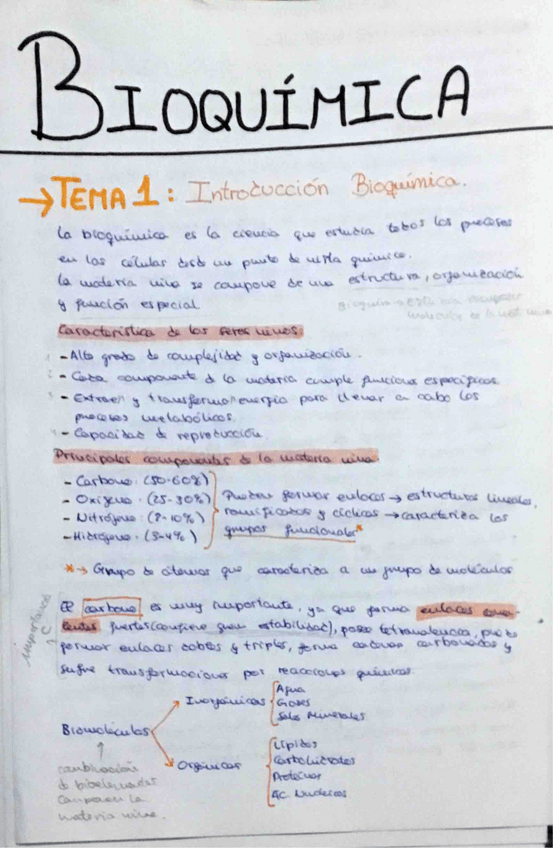 BIOQUÍMICA
→TEMA 1: Introducción Bioquímica.
La bioquímica es la ciencia que estudia todos los procesos
en las células desd un punto de vista químico.
La materia viva se compone de una estructura, organización
y función especial
Característica de los seres vivos:
- Alto grado de complejidad y organización.
- Cada componente d la materia cumple funciones específicas.
- Extraer y transformar energía para llevar a cabo los
procesos metabólicos.
- Capacidad de reproducción
Principales componentes de la materia viva
- Carbono: (50-60%)
- Oxígeno: (25-30%)
- Nitrógeno: (8-10%)
- Hidrógeno: (3-4%)
Pueden formar enlaces → estructuras lineales,
ramificadas y cíclicas → caracteriza los
grupos funcionales*
*→ Grupo de átomos que caracteriza a un grupo de moléculas
El carbono es muy importante, ya que forma enlaces cova-
lentes fuertes (confiere gran estabilidad), posee tetravalencia, puede
formar enlaces dobles y triples, forma cadenas carbonadas y
sufre transformaciones por reacciones químicas.
importancia
C
Biomoléculas
Inorgánicas
Agua
Gases
Sales Minerales
Orgánicas
Lípidos
Carbohidratos
Proteínas
AC. Nucleicos
combinación
de bioelementos
Componen la
materia viva.